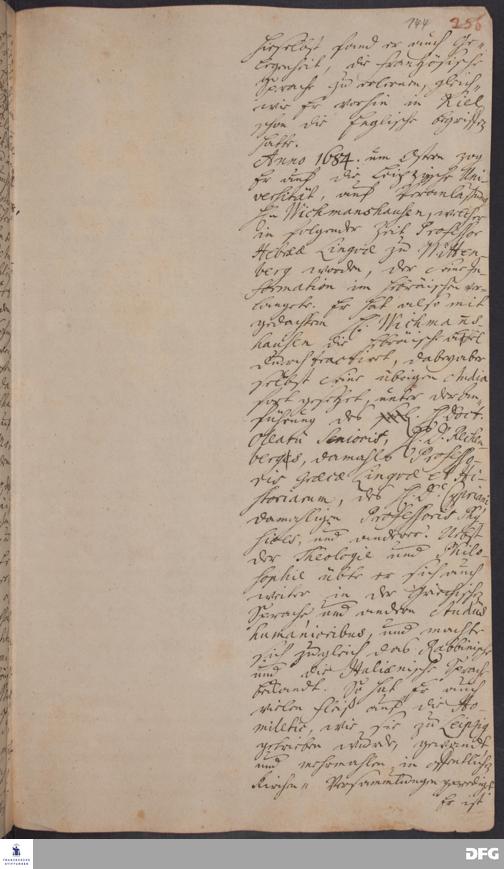 144 256
hieselbst fand er auch Ge-
legenheit, die Frantzösische
Sprache zu erlernen, gleich-
wie Er vorhin in Kiel
schon die Englische begriffen
hatte.
Anno 1684. um Ostern zog
Er auf die Leipziger Uni-
versität, auf Veranlaßung
Hn Wichmanshausen, welcher
in folgender Zeit Professor
Hebrææ Lingvæ zu Witten-
berg worden, der eine In-
formation im Hebräischen ver-
langete. Er hat also mit
gedachtem H. Wichmanns-
hausen die Hebräische Bibel
durchtractiret, dabey aber
selbst seine übrigen Studia
fortgesetzet, unter der An-
führung des H. Doct.
Olearii Senioris, H. D. Rechen-
bergs, damahls Professo-
ris Græcæ Lingvæ et Hi-
storiarum, des H. D. Cypriani,
damaligen Professoris Phy-
sices, und anderer. Nebst
der Theologie und Philo-
sophie übte er sich auch
weiter in der Griechischen
Sprache und andern Studiis
humanioribus, und machte
sich zugleich das Rabbinische
und die Italiänische Sprach
bekandt. So hat Er auch
vielen Fleiß auf die Ho-
miletic, wie sie zu Leipzig
getrieben wurde, gewandt
und mehrmahlen in öffentlichen
Kirchen-Versammlungen geprediget.
Er ist
FRANCKESCHE STIFTUNGEN
DFG